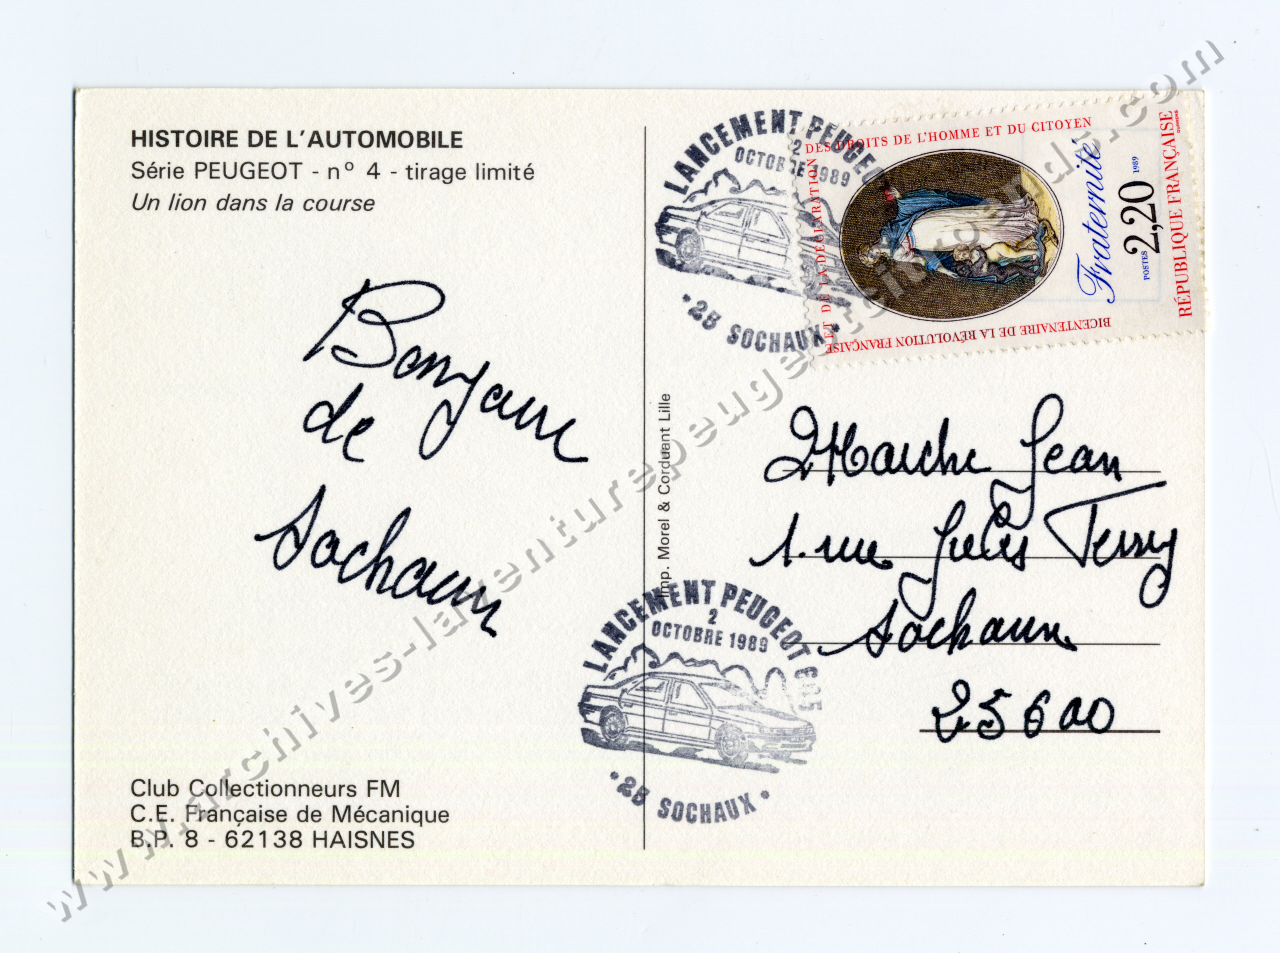 HISTOIRE DE L'AUTOMOBILE
Série PEUGEOT - n° 4 - tirage limité
Un lion dans la course
Bonjour
de
Sochaux
Club Collectionneurs FM
C.E. Française de Mécanique
B.P. 8 - 62138 HAISNES
Imp. Morel & Corduant Lille
LANCEMENT PEUGEOT
2
OCTOBRE 1989
25 SOCHAUX
DES DROITS DE L'HOMME ET DU CITOYEN
ET DE LA DÉCLARATION
BICENTENAIRE DE LA RÉVOLUTION FRANÇAISE
Fraternité
1989
2,20
POSTES
RÉPUBLIQUE FRANÇAISE
Jean
1. rue Jules Ferry
Sochaux
25600
LANCEMENT PEUGEOT 605
2
OCTOBRE 1989
25 SOCHAUX
www.archives-laventurepeugeotcitroends.com